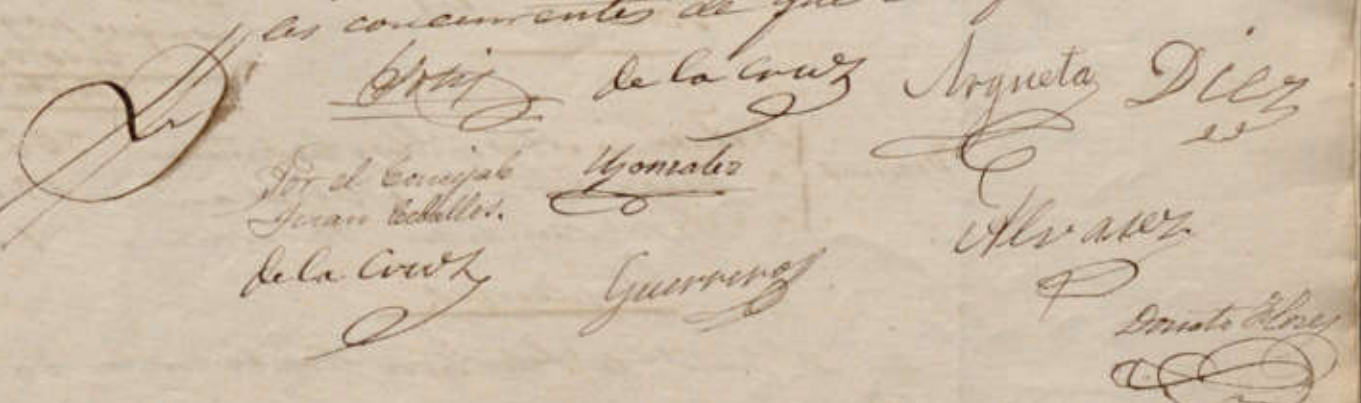 los concurrentes de que
de la Cruz Argueta Diez
Por el Concejal Gonzalez
Juan Ceballos.
Alvarez
de la Cruz Guerrero
Donato Flores